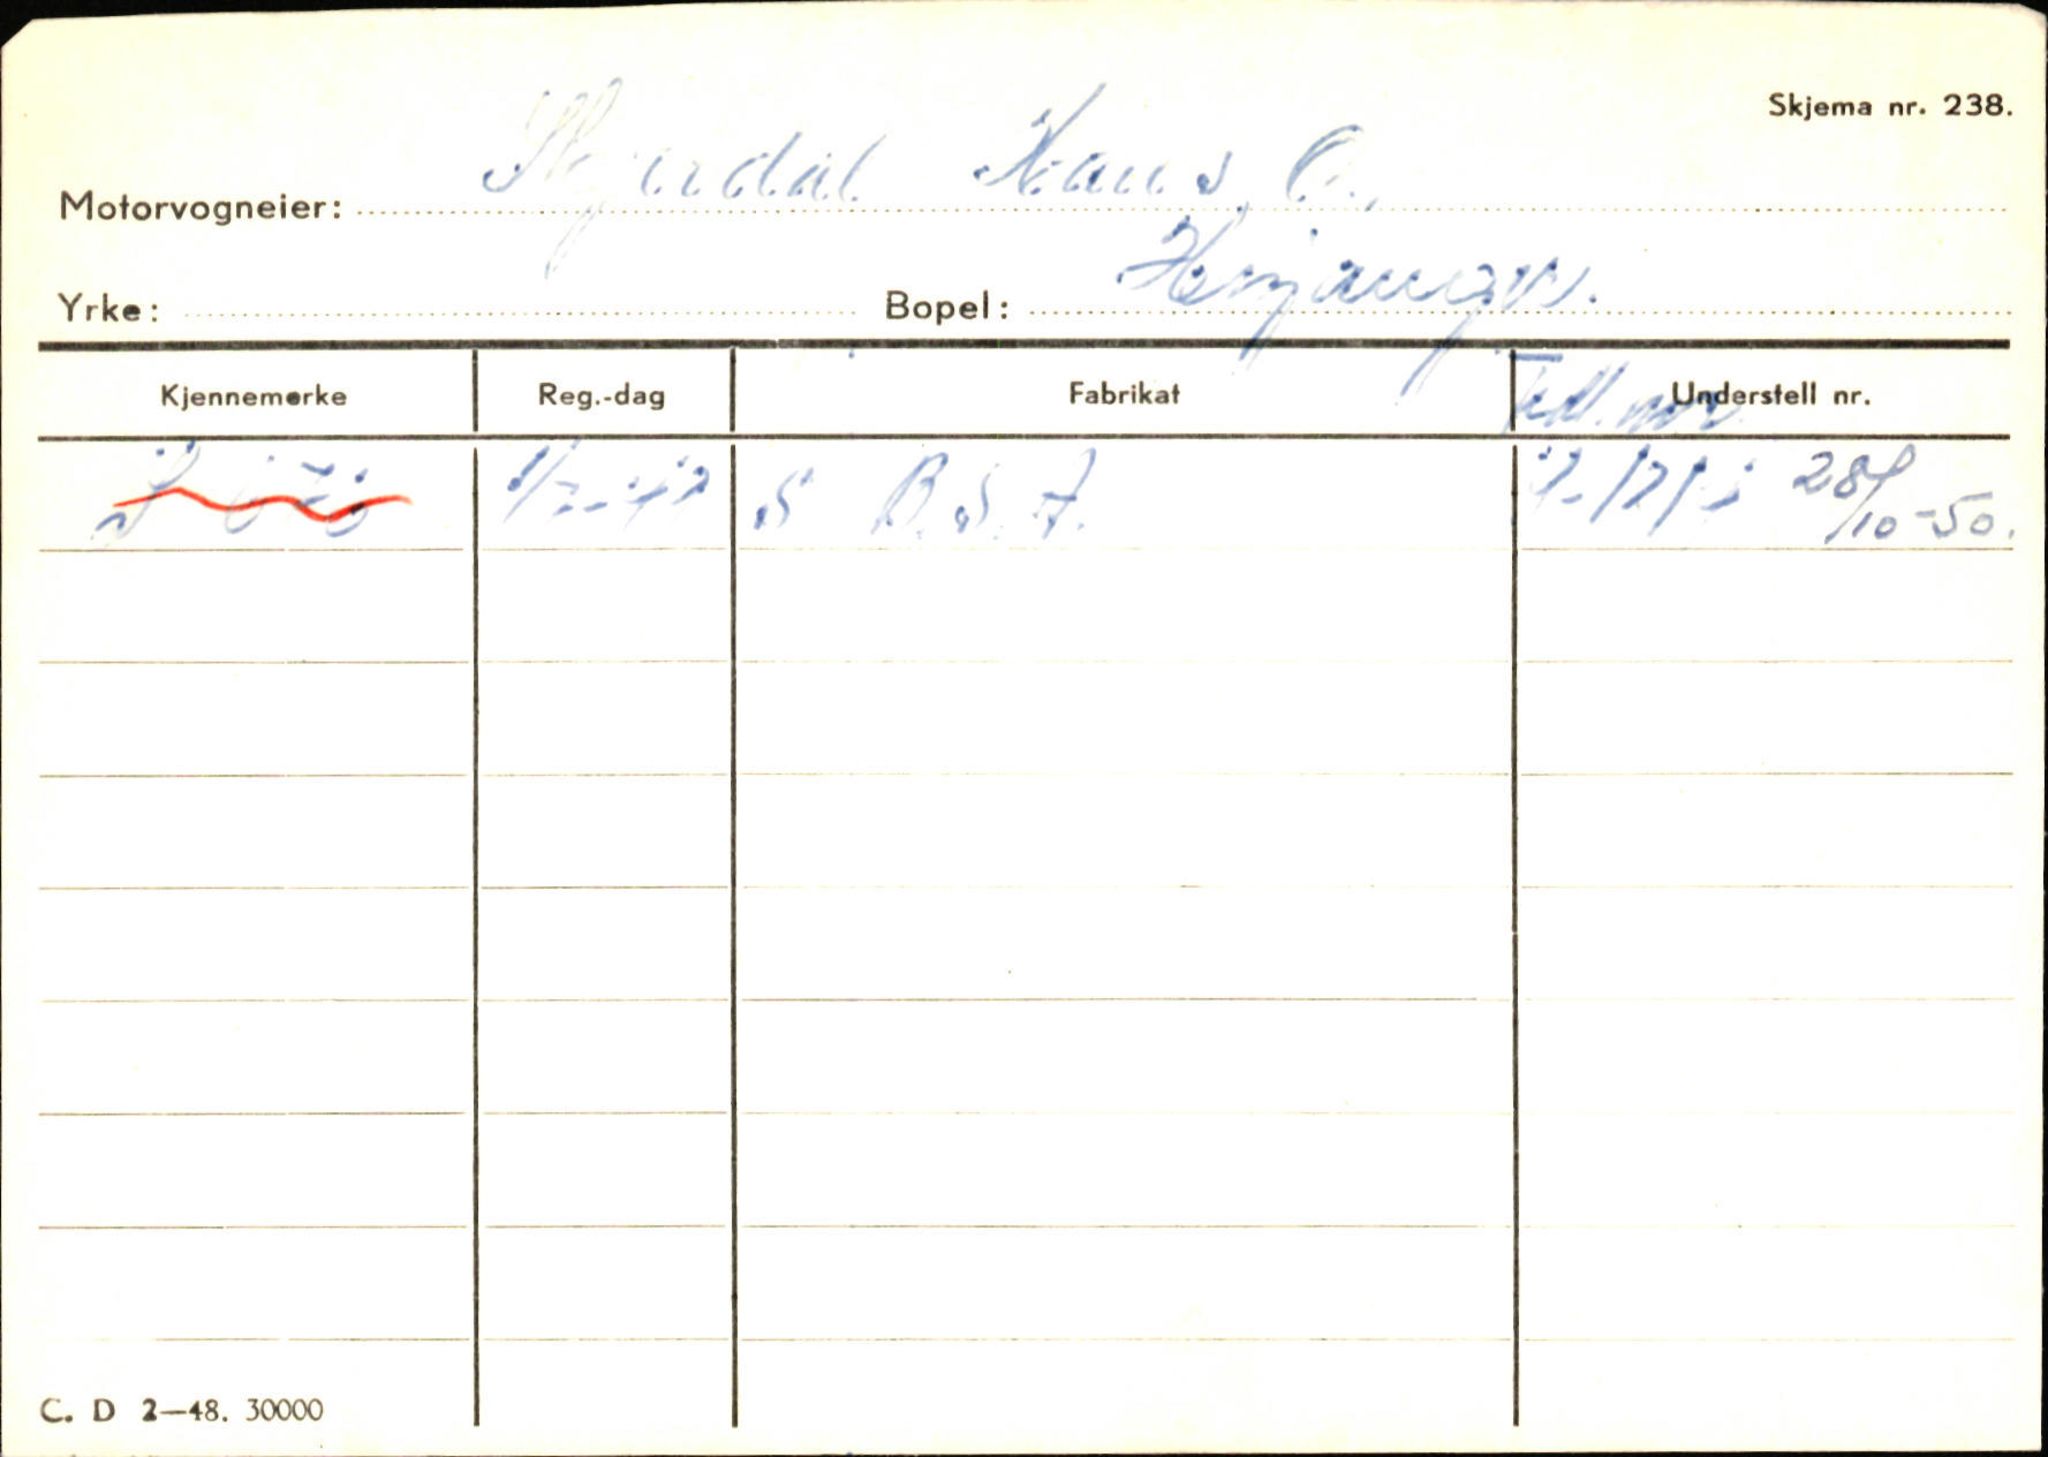 Skjema nr. 238.
Motorvogneier: Skjerdal Hans O.,
Yrke: Bopel: Høyanger.
Kjennemerke Reg.-dag Fabrikat Understell nr.
S B.S.A. 28/10-50.
C. D 2—48. 30000